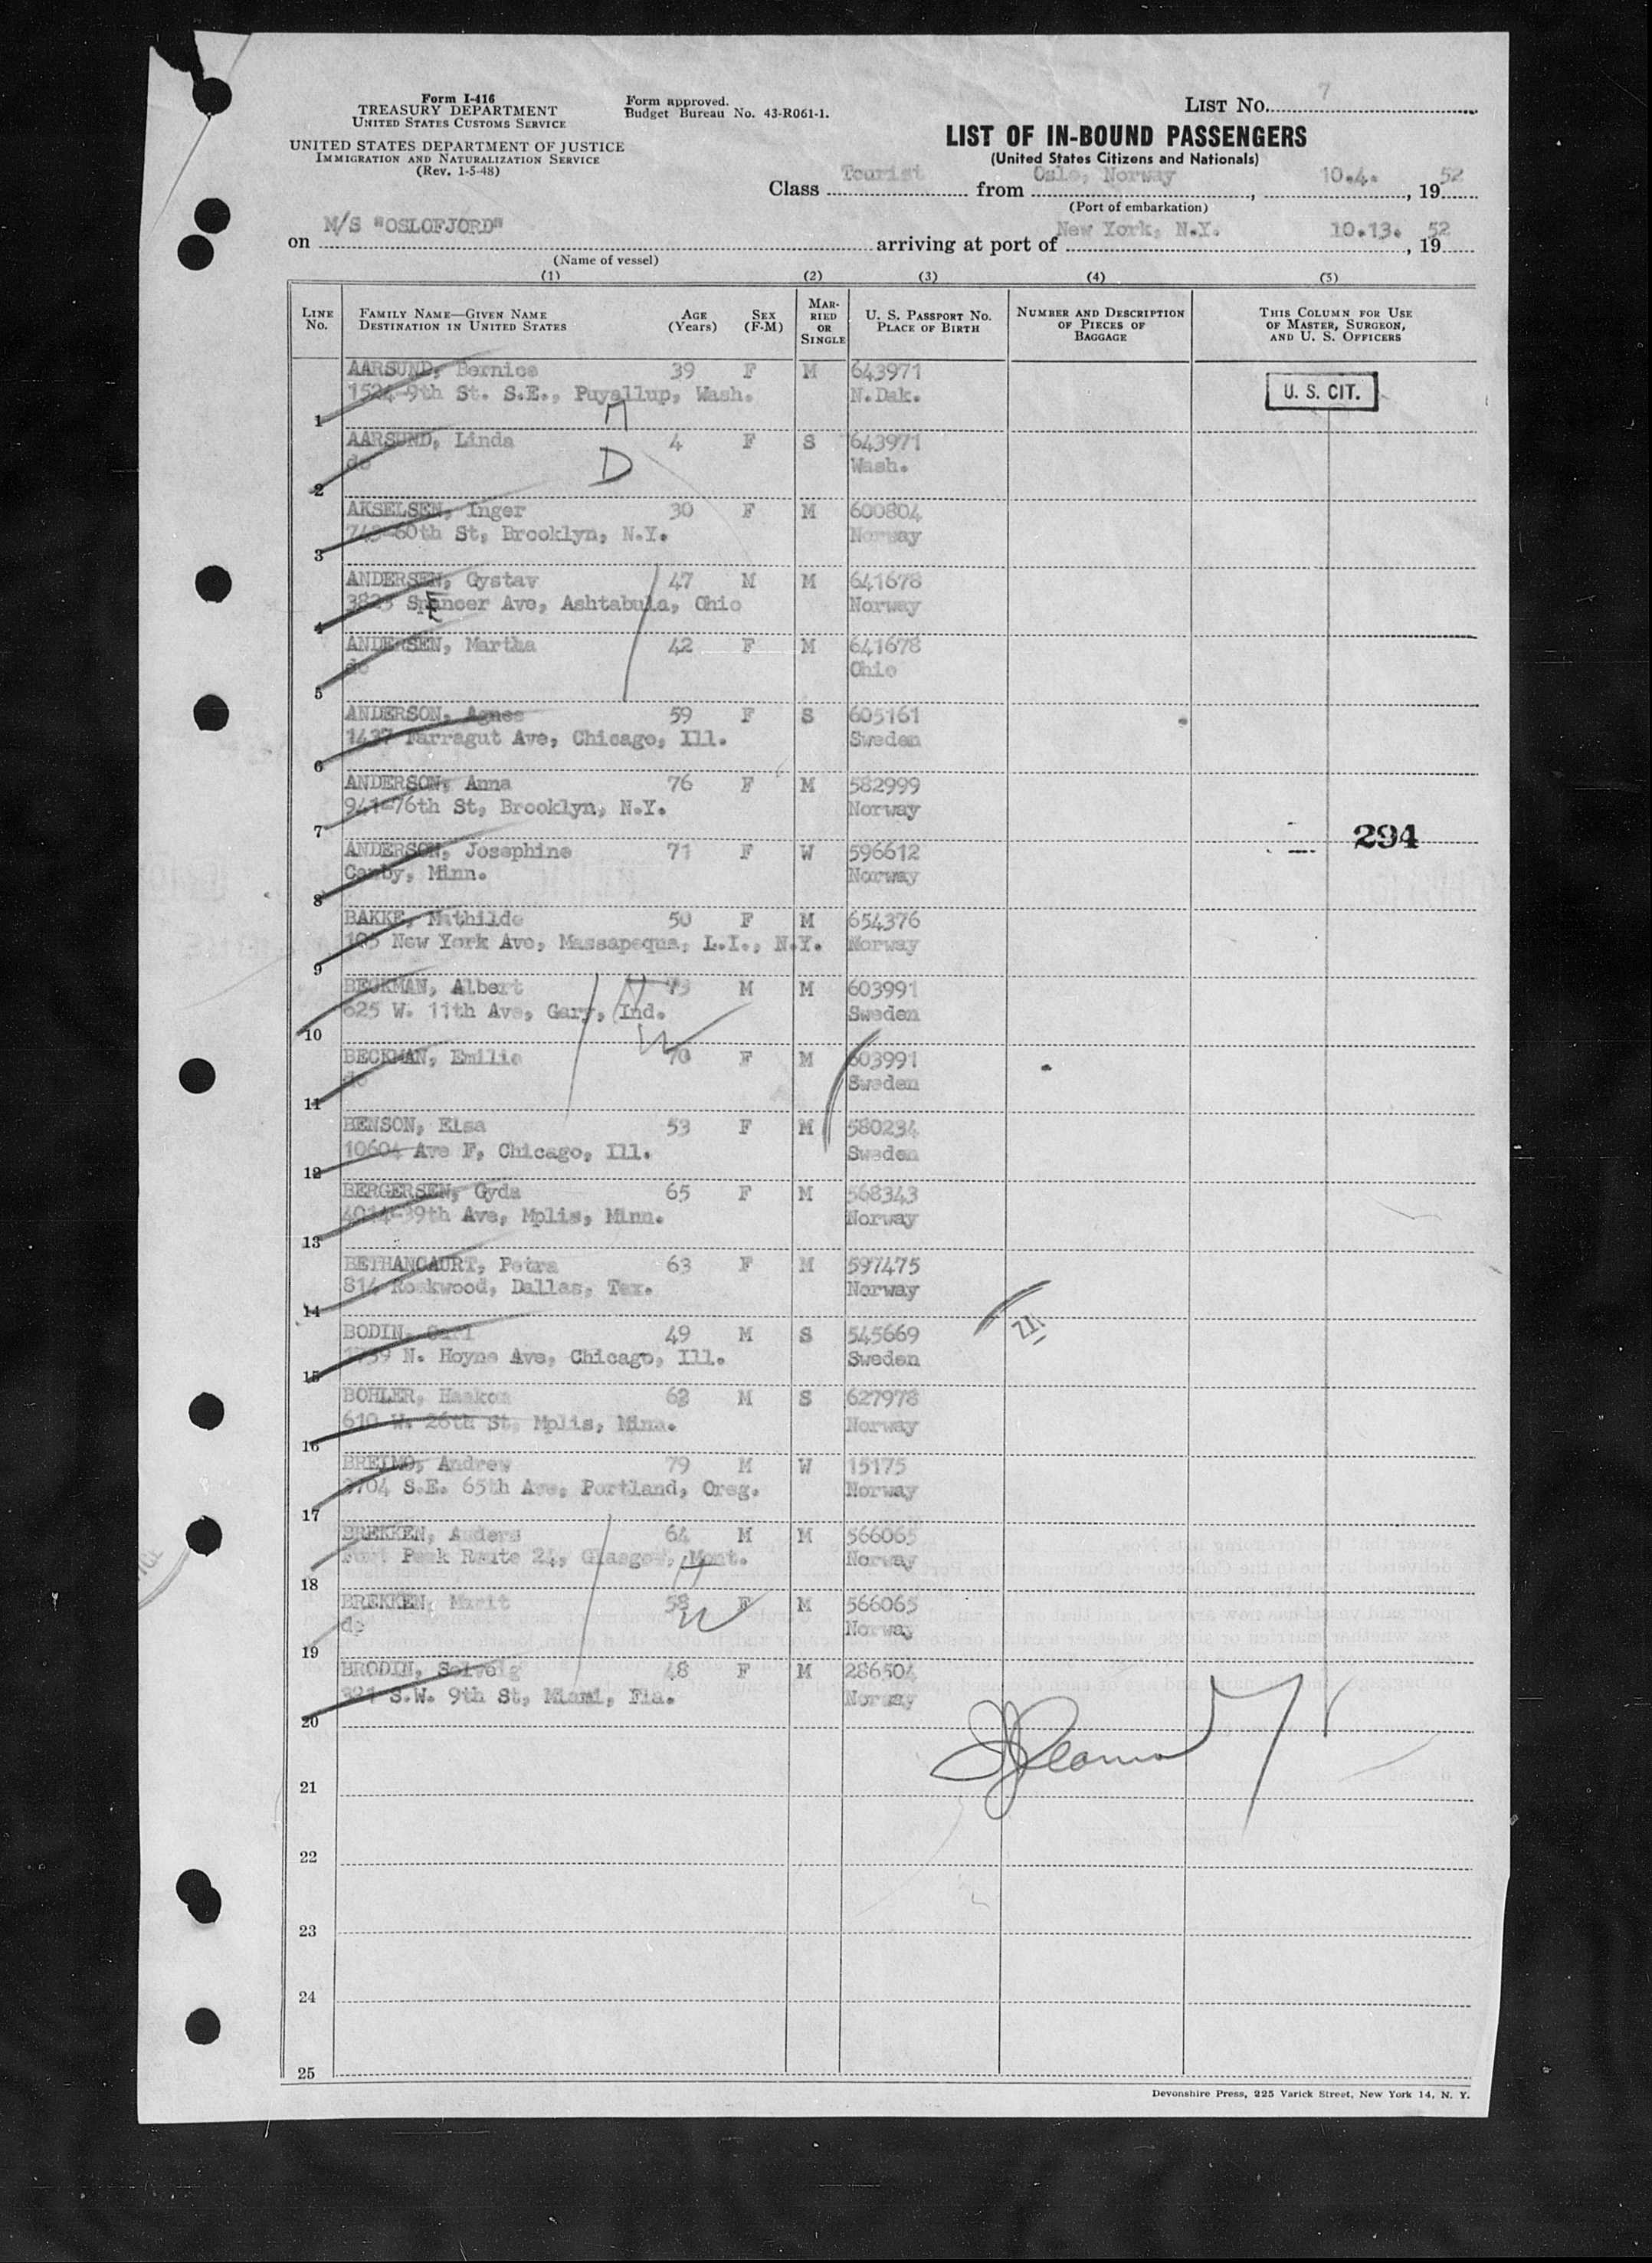 Form I-416
TREASURY DEPARTMENT
UNITED STATES CUSTOMS SERVICE
UNITED STATES DEPARTMENT OF JUSTICE
IMMIGRATION AND NATURALIZATION SERVICE
(Rev. 1-5-48)
Form approved.
Budget Bureau No. 43-R061-1.
LIST No. 7
LIST OF IN-BOUND PASSENGERS
(United States Citizens and Nationals)
Class Tourist from Oslo, Norway, 10.4., 1952
(Port of embarkation)
on M/S "OSLOFJORD" arriving at port of New York, N.Y. 10.13., 1952
(Name of vessel)
(1) (2) (3) (4) (5)
LINE No. FAMILY NAME—GIVEN NAME DESTINATION IN UNITED STATES AGE (Years) SEX (F-M) MARRIED OR SINGLE U. S. PASSPORT No. PLACE OF BIRTH NUMBER AND DESCRIPTION OF PIECES OF BAGGAGE THIS COLUMN FOR USE OF MASTER, SURGEON, AND U. S. OFFICERS
AARSUND, Bernice 39 F M 643971
1524-9th St. S.E., Puyallup, Wash. N.Dak. U. S. CIT.
1 M
AARSUND, Linda 4 F S 643971
do D Wash.
2
AKSELSEN, Inger 30 F M 600804
743-60th St, Brooklyn, N.Y. Norway
3
ANDERSEN, Gystav 47 M M 641678
3823 Spencer Ave, Ashtabula, Ohio Norway
4
ANDERSEN, Martha 42 F M 641678
do Ohio
5
ANDERSON, Agnes 59 F S 605161
1437 Farragut Ave, Chicago, Ill. Sweden
6
ANDERSON, Anna 76 F M 582999
941-76th St, Brooklyn, N.Y. Norway
7 294
ANDERSON, Josephine 71 F W 596612
Canby, Minn. Norway
8
BAKKE, Mathilde 50 F M 654376
105 New York Ave, Massapequa, L.I., N.Y. Norway
9
BECKMAN, Albert H M M 603991
625 W. 11th Ave, Gary, Ind. Sweden
10 W
BECKMAN, Emilie 70 F M 603991
do Sweden
11
BENSON, Elsa 53 F M 580234
10604 Ave F, Chicago, Ill. Sweden
12
BERGERSEN, Gyda 65 F M 568343
4014-39th Ave, Mplis, Minn. Norway
13
BETHANCAURT, Petra 63 F M 597475
814 Rockwood, Dallas, Tex. Norway
14
BODIN, Carl 49 M S 545669
1739 N. Hoyne Ave, Chicago, Ill. Sweden
15
BOHLER, Haakon M S 627978
610 W. 26th St, Mplis, Minn. Norway
16
BREIMO, Andrew 79 M W 15175
3704 S.E. 65th Ave, Portland, Oreg. Norway
17
BREKKEN, Anders 64 M M 566065
Fort Peak Route 24, Glasgow, Mont. Norway
18 H
BREKKEN, Marit 58 F M 566065
do W Norway
19
BRODIN, Solveig 48 F M 286504
321 S.W. 9th St, Miami, Fla. Norway
20
21
22
23
24
25
Devonshire Press, 225 Varick Street, New York 14, N. Y.